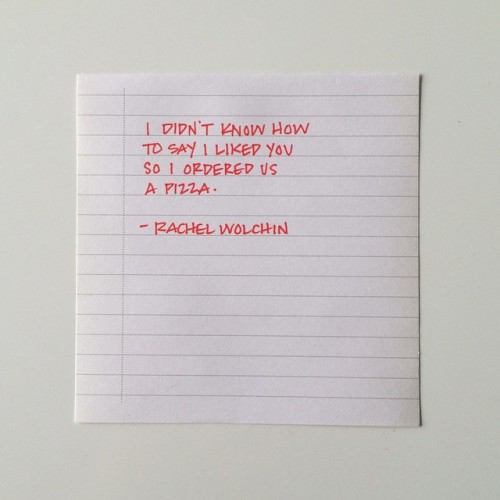 I DIDN'T KNOW HOW
TO SAY I LIKED YOU
SO I ORDERED US
A PIZZA.
- RACHEL WOLCHIN